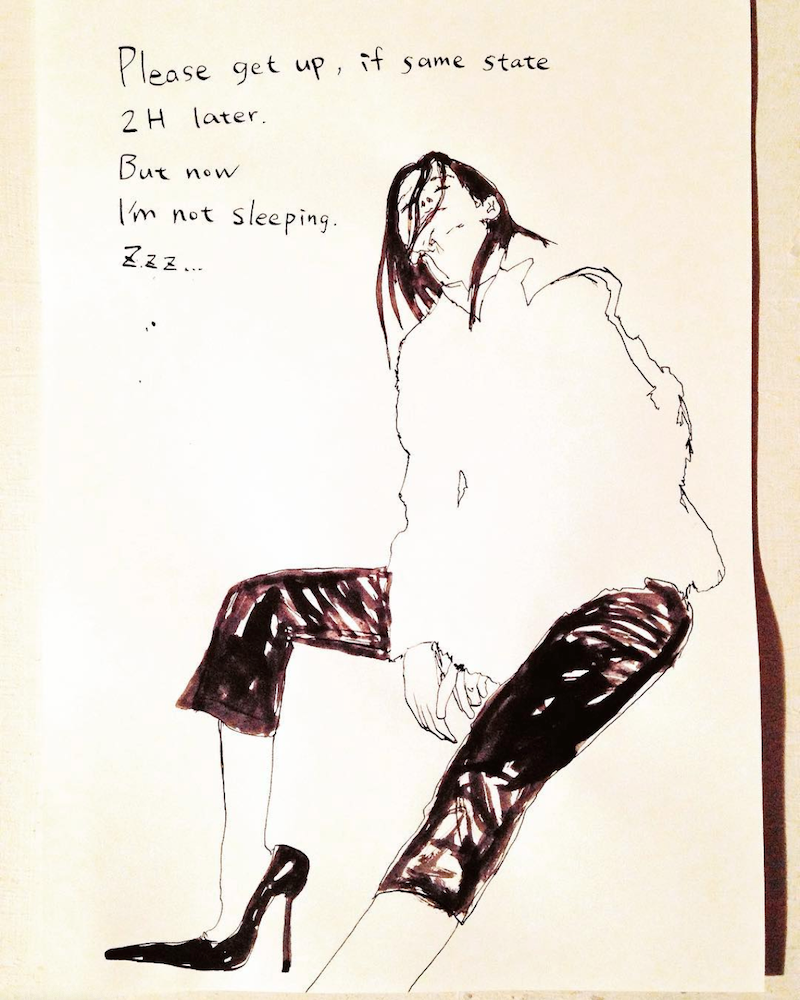 Please get up, if same state
2H later.
But now
I'm not sleeping.
Zzz...